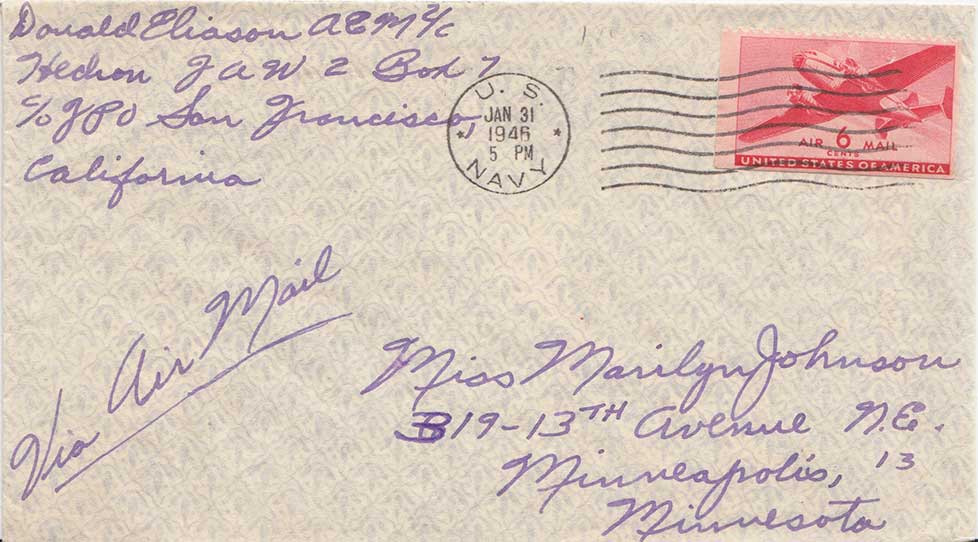 Donald Eliason AEM 2/c
Hedron FAW 2 Box 7
c/o FPO San Francisco,
California
U. S.
JAN 31
1946
5 PM
NAVY
AIR 6 MAIL
CENTS
UNITED STATES OF AMERICA
Via Air Mail
Miss Marilyn Johnson
319-13TH Avenue N.E.
Minneapolis, 13
Minnesota